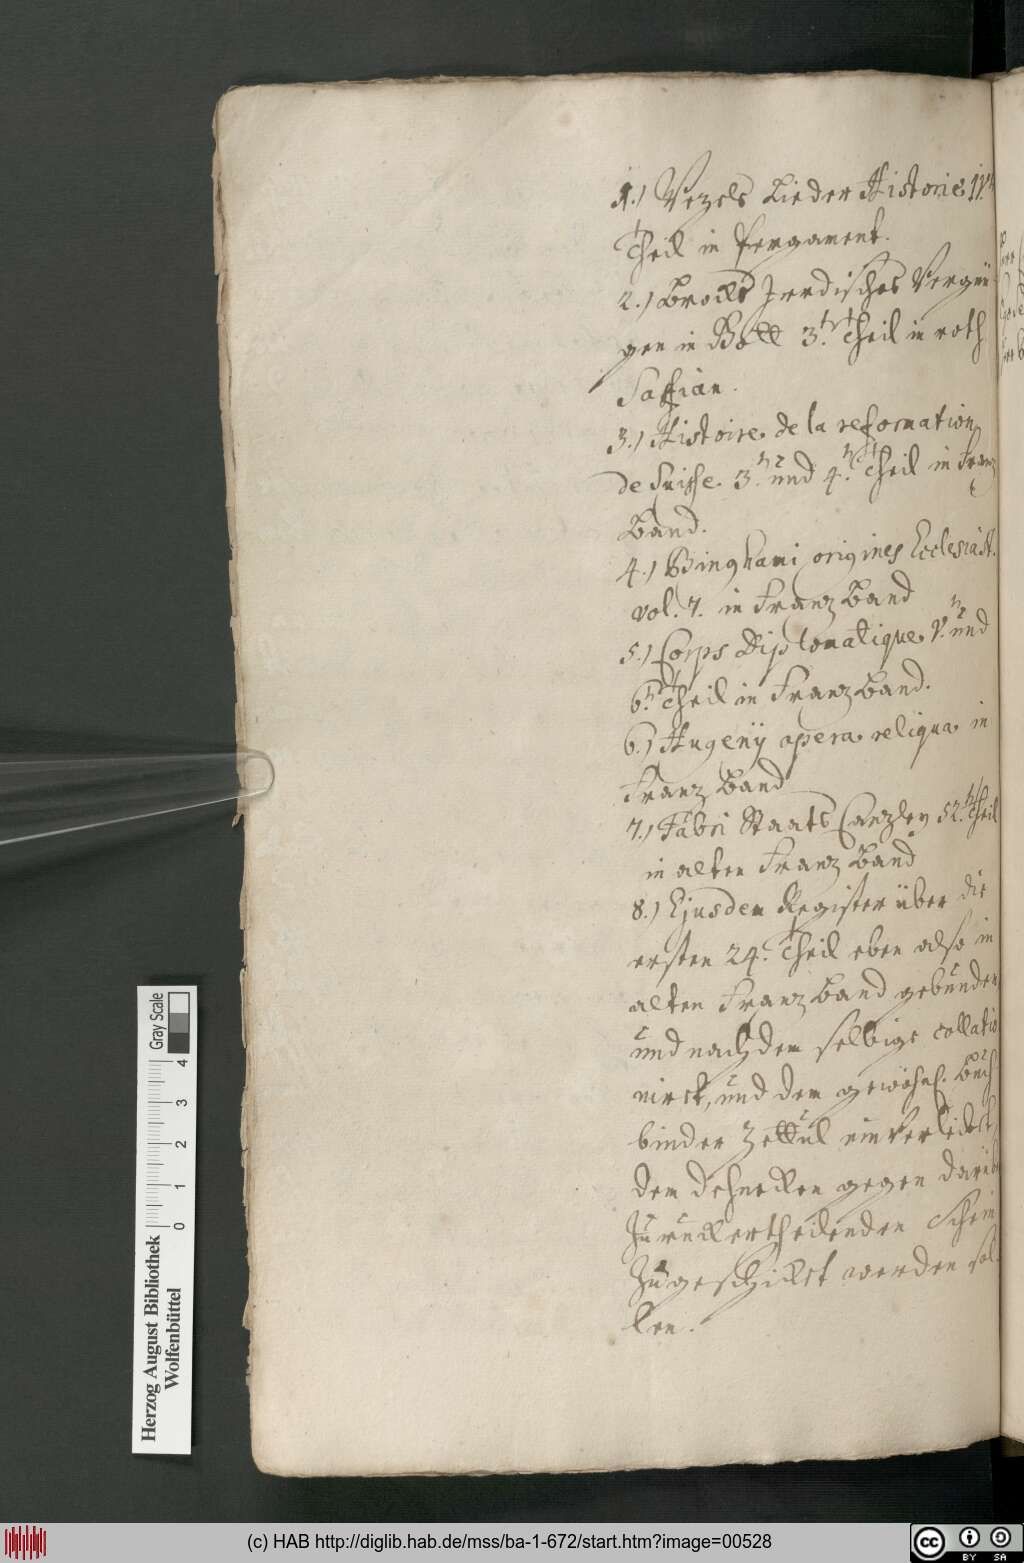 1.) Vezels Lieder Historie IV.
Theil in Pergament.
2.) Brocks Irrdisches Vergnü-
gen in Gott 3.tr Theil in roth
Saffian.
3.) Histoire de la reformation
de Suisse. 3.n und 4.n Theil in Franz
Band.
4.) Binghami origines Ecclesiast.
vol. 7. in Franz Band
5.) Corps Diplomatique V.n und
6.n Theil in Franz Band.
6.) Hugenÿ opera reliqua in
Franz Band
7.) Fabri Staats Canzley 52.n Theil
in alten Franz Band
8.) Ejusdem Register über die
ersten 24. Theil eben also in
alten Franz Band gebunden
und nachdem selbige collatio
nirt, und dem gewöhnl. Buch
binder Zettul einverleibt,
dem gegen darüb
Zurückertheilenden Schein
Zugeschickt werden sol-
len.
Herzog August Bibliothek
Wolfenbüttel
0 1 2 3 4
Gray Scale
(c) HAB http://diglib.hab.de/mss/ba-1-672/start.htm?image=00528
cc BY SA